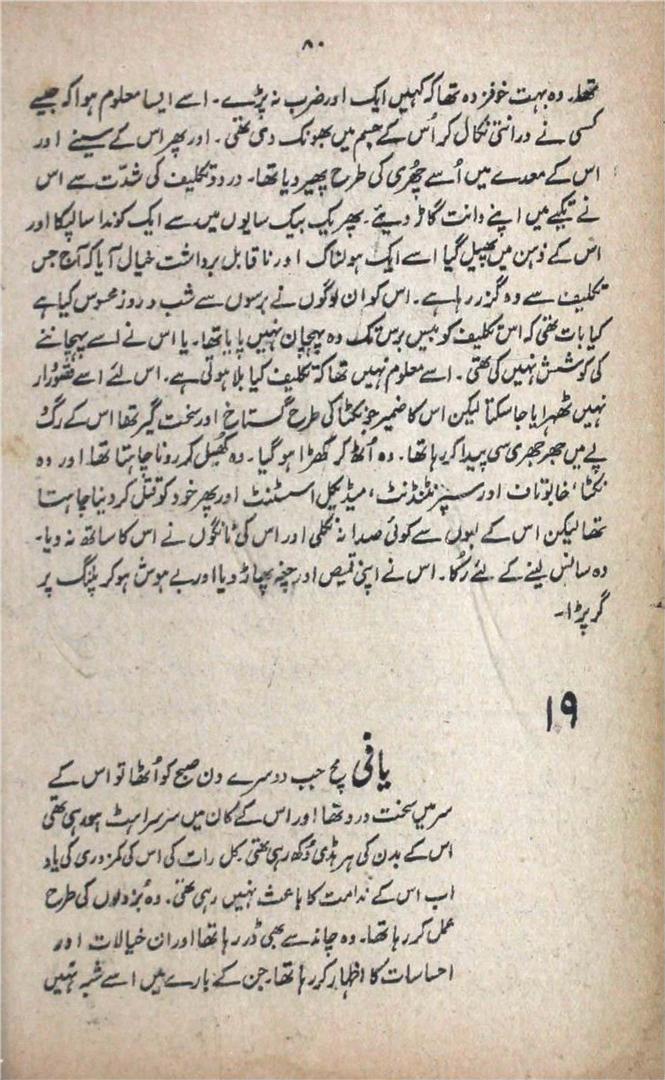 ۸۰
تھا۔ وہ بہت خوفزدہ تھا کہ کہیں ایک اور ضرب نہ پڑے۔ اسے ایسا معلوم ہوا کہ جیسے
کسی نے درانتی نکال کر اُس کے جسم میں بھونک دی تھی۔ اور پھر اس کے سینے اور
اس کے معدے میں اُسے چھُری کی طرح پھیر دیا تھا۔ درد و تکلیف کی شدّت سے اس
نے تکیے میں اپنے دانت گاڑ دیئے۔ پھر یک بیک سایوں میں سے ایک کوندا سا لپکا اور
اس کے ذہن میں پھیل گیا اسے ایک ہولناک اور ناقابل برداشت خیال آیا کہ آج جس
تکلیف سے وہ گزر رہا ہے۔ اس کو ان لوگوں نے برسوں سے شب و روز محسوس کیا ہے
کیا بات تھی کہ اس تکلیف کو بیس برس تک وہ پہچان نہیں پایا تھا۔ یا اس نے اسے پہچاننے
کی کوشش نہیں کی تھی۔ اسے معلوم نہیں تھا کہ تکلیف کیا بلا ہوتی ہے۔ اس لئے اسے قصوُرار
نہیں ٹھہرایا جا سکتا لیکن اس کا ضمیر جو نکٹا کی طرح گستاخ اور سخت گیر تھا اس کے رگ
پے میں جھر جھری سی پیدا کر رہا تھا۔ وہ اُٹھ کر کھڑا ہو گیا۔ وہ کھُل کر رونا چاہتا تھا اور وہ
نکٹا، خابوتاف اور سپرنٹنڈنٹ، میڈیکل اسسٹنٹ اور پھر خود کو قتل کر دینا چاہتا
تھا لیکن اس کے لبوں سے کوئی صدا نہ نکلی اور اس کی ٹانگوں نے اس کا ساتھ نہ دیا۔
وہ سانس لینے کے لئے رُکا۔ اس نے اپنی قمیص اور جُبّہ پھاڑ دیا اور بے ہوش ہو کر پلنگ پر
گر پڑا۔
۱۹
یافی مچ جب دوسرے دن صبح کو اُٹھا تو اس کے
سر میں سخت درد تھا اور اس کے کان میں سرسراہٹ ہو رہی تھی
اس کے بدن کی ہر ہڈی دُکھ رہی تھی۔ کل رات کی اس کی کمزوری کی یاد
اب اس کے ندامت کا باعث نہیں رہی تھی۔ وہ بُزدلوں کی طرح
عمل کر رہا تھا۔ وہ چاند سے بھی ڈر رہا تھا اور ان خیالات اور
احساسات کا اظہار کر رہا تھا۔ جن کے بارے میں اسے شبہ نہیں